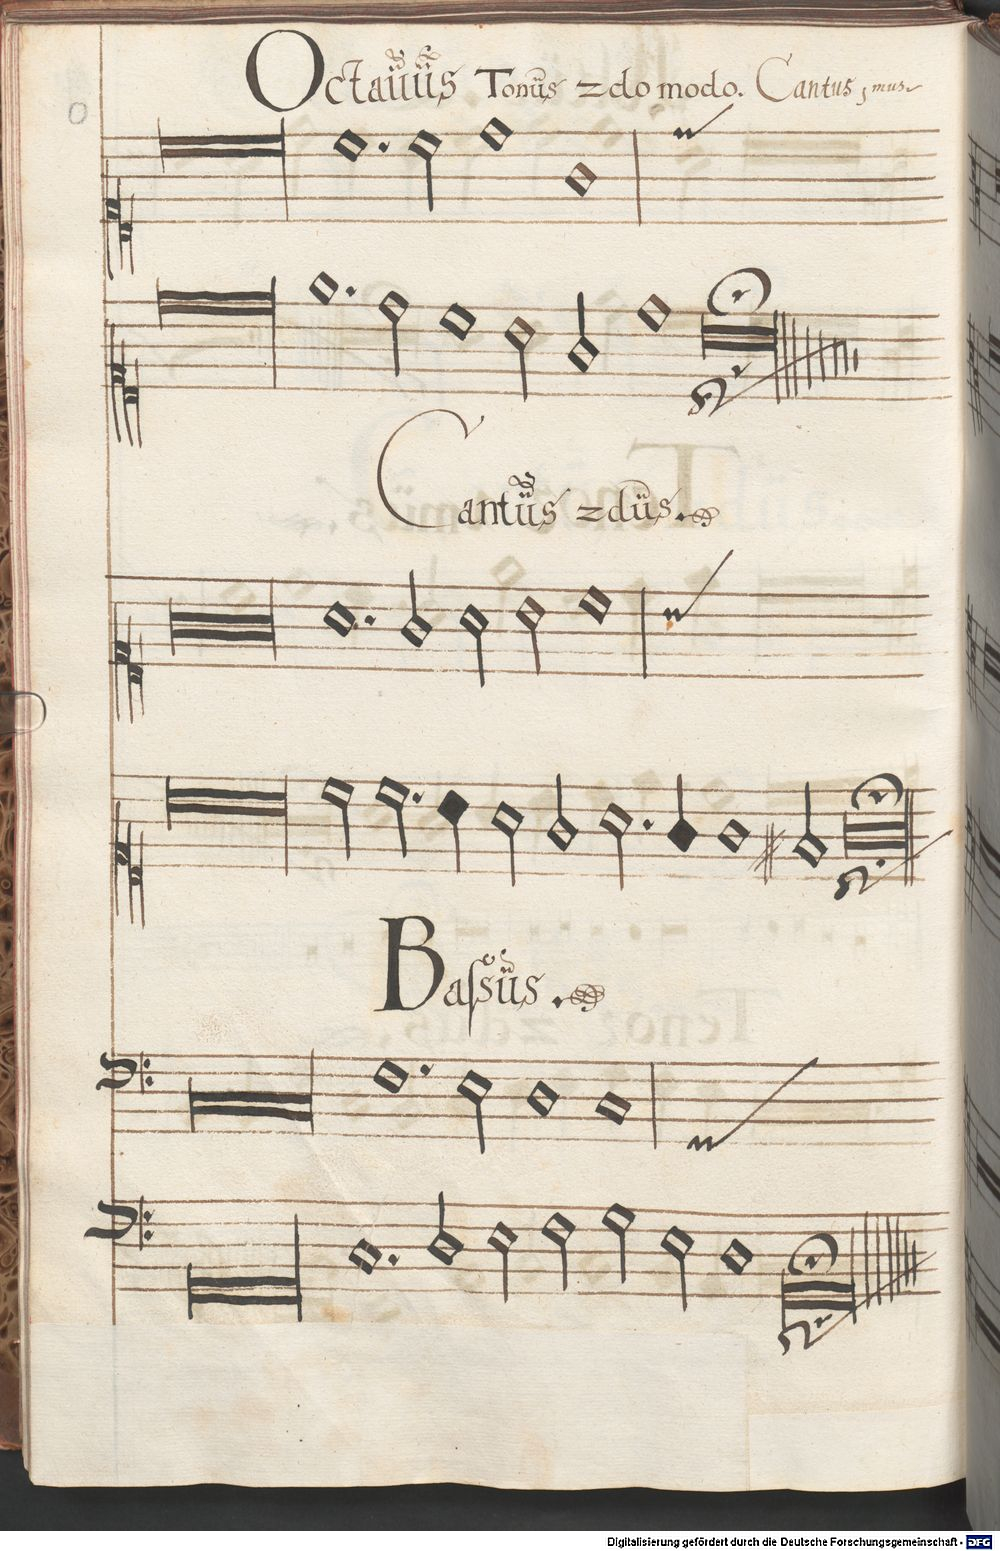 Octauus Tonus 2do modo. Cantus 1mus
Cantus 2dus.
Bassus.
Digitalisierung gefördert durch die Deutsche Forschungsgemeinschaft - DFG